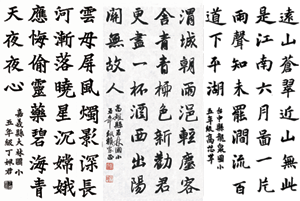 遠山蒼翠近山無此
是江南六月圖一片
雨聲知未罷流百
道下平湖
台中縣國小
五年級高
渭城朝雨浥輕塵客
舍青青柳色新勸君
更盡一杯酒西出陽
關無故人
高雄縣國小
五年級賴
雲母屏風燭影深長
河漸落曉星沉嫦娥
應悔偷靈藥碧海青
天夜夜心
嘉義縣大林國小
五年級丁姵君